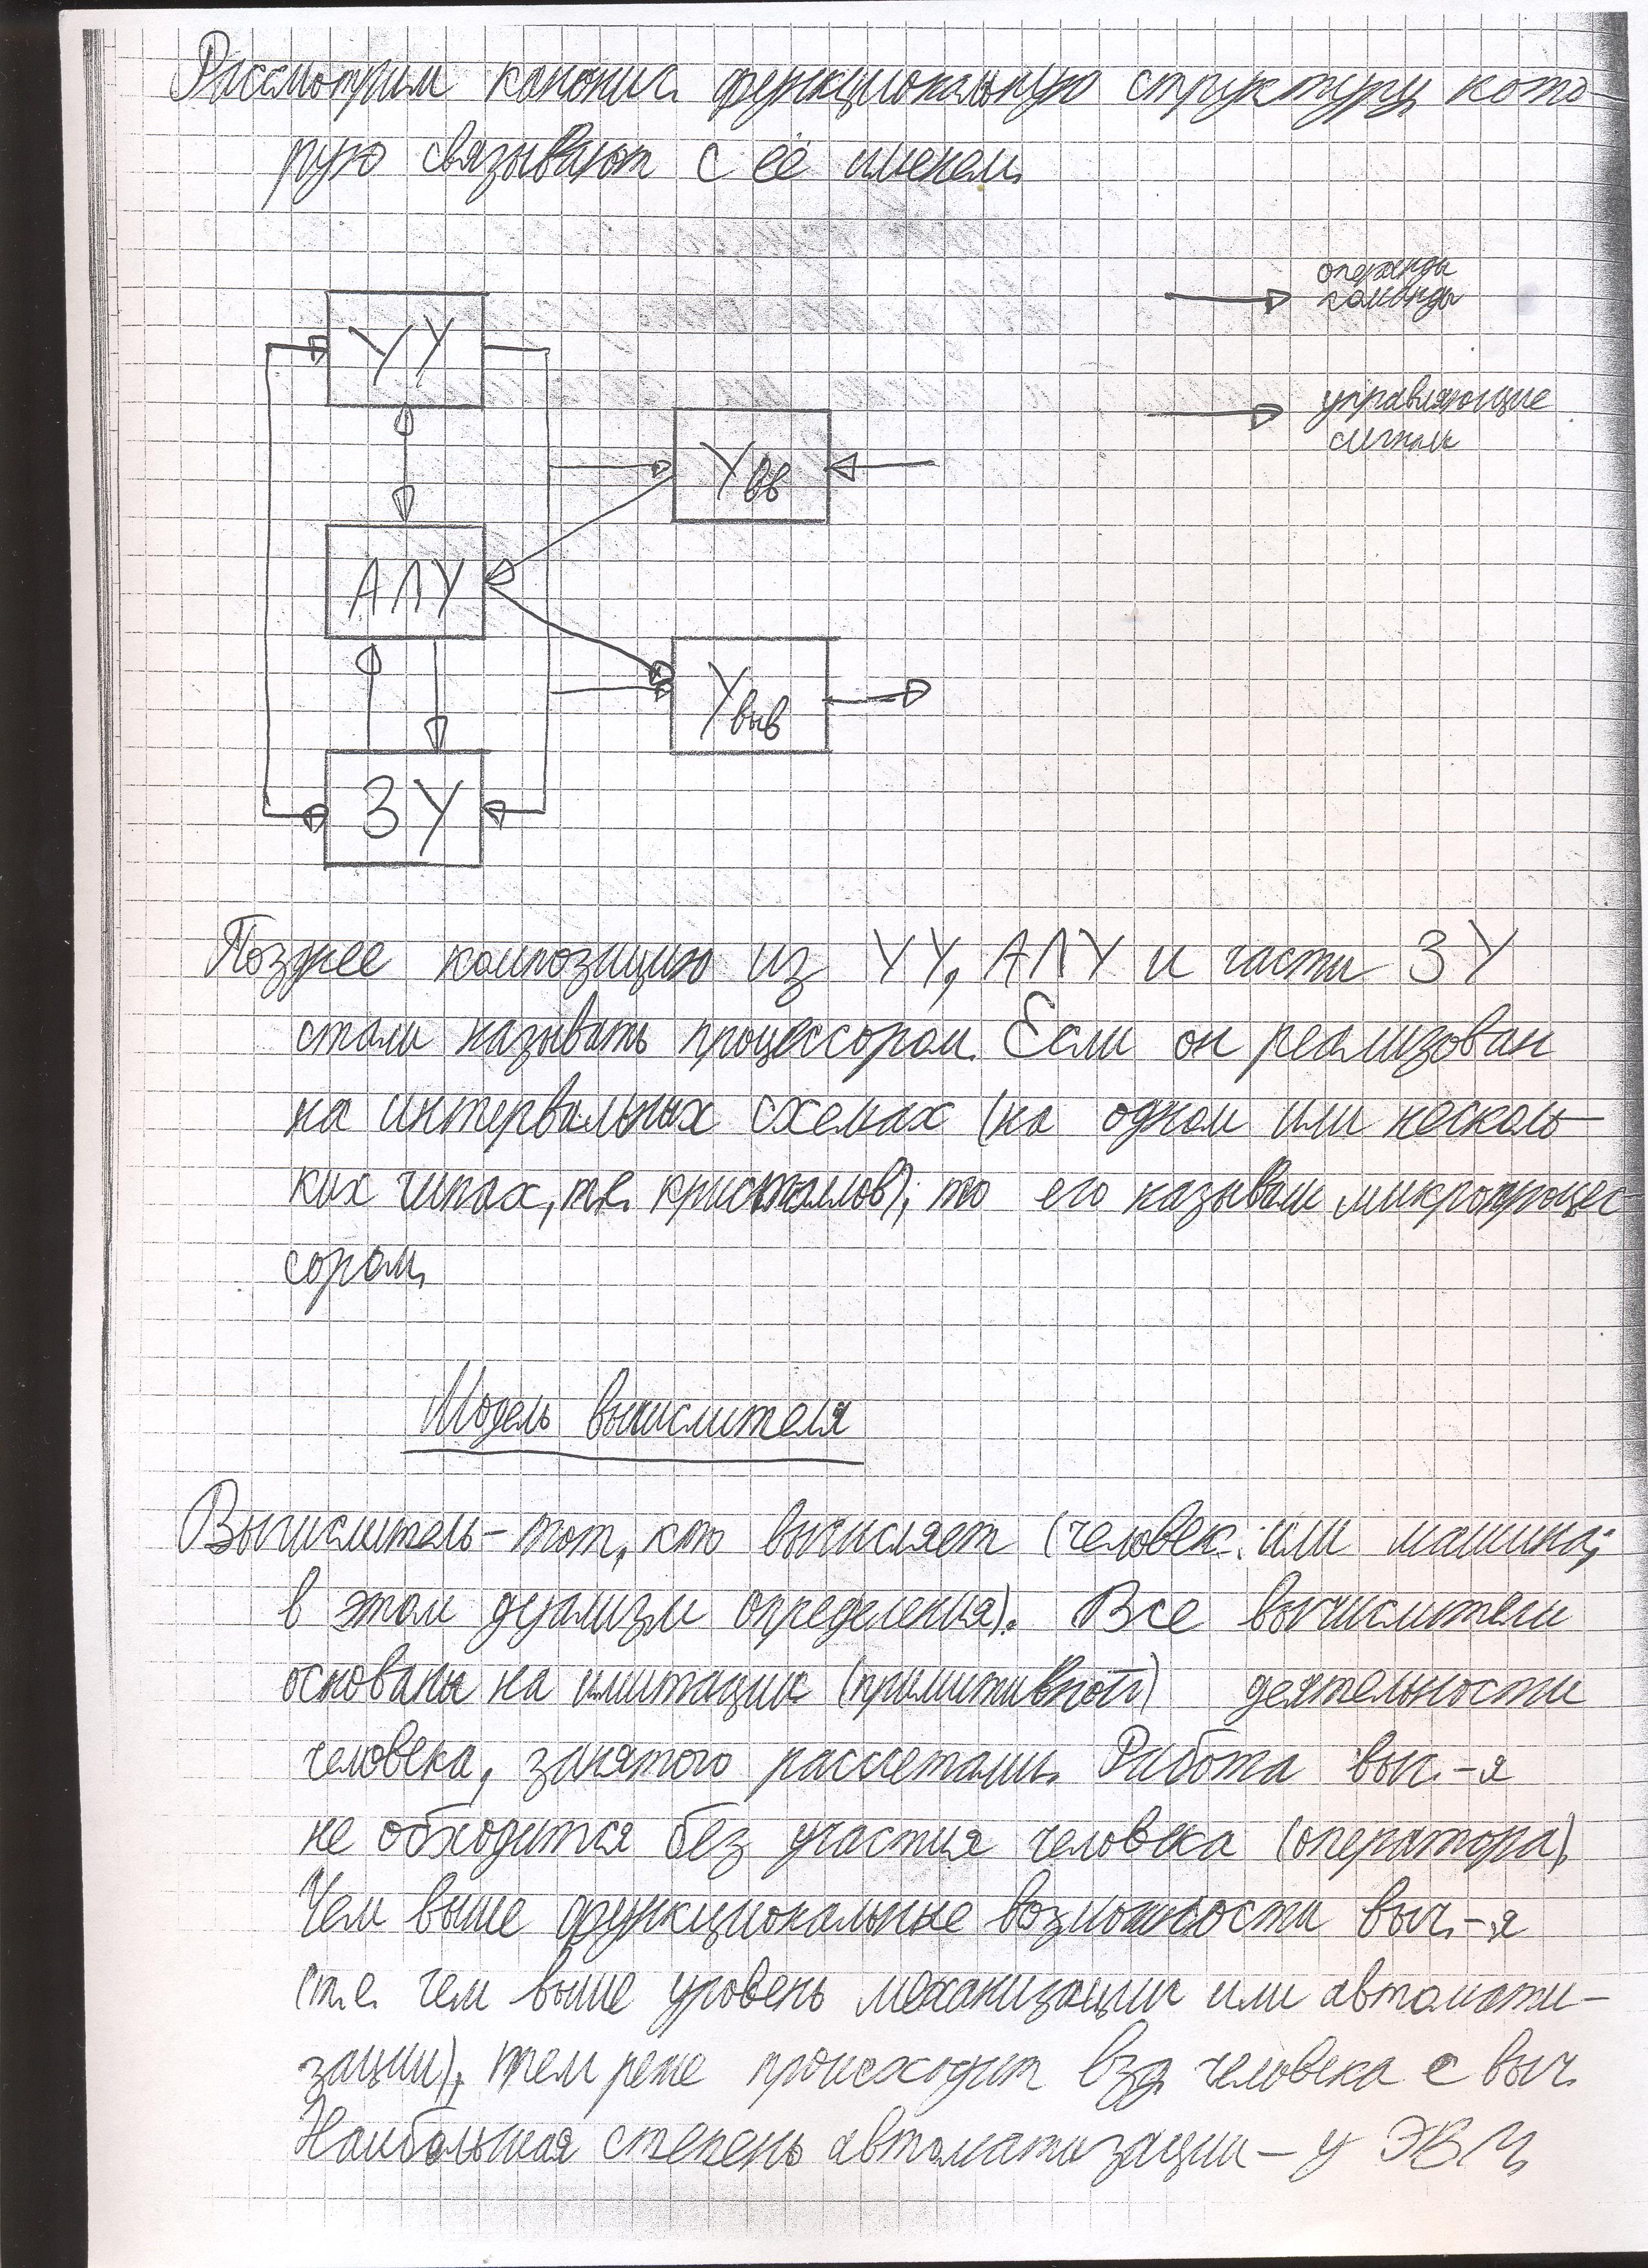 Рассмотрим каконич. функциональную структуру, кото-
рую связывают с её именем.
операнды
команды
УУ
управляющие
сигналы
Увв
АЛУ
Увыв
ЗУ
Позднее композицию из УУ, АЛУ и части ЗУ
стали называть процессором. Если он реализован
на интервальных схемах (на одном или несколь-
ких чипах, т.е. кристаллов), то его назывли микропроцес-
сором.
Модель вычислителя
Вычислитель - тот, кто вычисляет (человек или машина;
в этом дуализм определения). Все вычислители
основаны на имитации (примитивной) деятельности
человека, занятого рассчетами. Работа выс.-я
не обходится без участия человека (оператора).
Чем выше функциональные возможности выч.-я
(т.е. чем выше уровень механизации или автомати-
зации), тем реже происходит взд человека с выч.
Наибольшая степень автоматизации - у ЭВМ.